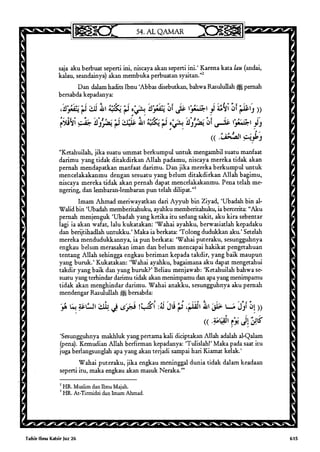 54. AL QAMAR
saja aku berbuat seperti ini, niscaya akan seperti ini.' Karena kata law (andai,
kalau, seandainya) akan membuka perbuatan syaitan."²
Dan dalam hadits Ibnu 'Abbas disebutkan, bahwa Rasulullah ﷺ pernah
bersabda kepadanya:
"Ketahuilah, jika suatu ummat berkumpul untuk mengambil suatu manfaat
darimu yang tidak ditakdirkan Allah padamu, niscaya mereka tidak akan
pernah mendapatkan manfaat darimu. Dan jika mereka berkumpul untuk
mencelakakanmu dengan sesuatu yang belum ditakdirkan Allah bagimu,
niscaya mereka tidak akan pernah dapat mencelakakanmu. Pena telah me-
ngering, dan lembaran-lembaran pun telah dilipat."³
Imam Ahmad meriwayatkan dari Ayyub bin Ziyad, 'Ubadah bin al-
Walid bin 'Ubadah memberitahuku, ayahku memberitahuku, ia bercerita: "Aku
pernah menjenguk 'Ubadah yang ketika itu sedang sakit, aku kira sebentar
lagi ia akan wafat, lalu kukatakan: 'Wahai ayahku, berwasiatlah kepadaku
dan berijtihadlah untukku.' Maka ia berkata: 'Tolong dudukkan aku.' Setelah
mereka mendudukkannya, ia pun berkata: 'Wahai puteraku, sesungguhnya
engkau belum merasakan iman dan belum mencapai hakikat pengetahuan
tentang Allah sehingga engkau beriman kepada takdir, yang baik maupun
yang buruk.' Kukatakan: 'Wahai ayahku, bagaimana aku dapat mengetahui
takdir yang baik dan yang buruk?' Beliau menjawab: 'Ketahuilah bahwa se-
suatu yang terhindar darimu tidak akan menimpamu dan apa yang menimpamu
tidak akan menghindar darimu. Wahai anakku, sesungguhnya aku pernah
mendengar Rasulullah ﷺ bersabda:
(( إِنَّ أَوَّلَ مَا خَلَقَ اللهُ الْقَلَمُ، ثُمَّ قَالَ لَهُ: اُكْتُبْ! فَجَرَى فِي تِلْكَ السَّاعَةِ بِمَا هُوَ
كَائِنٌ إِلَى يَوْمِ الْقِيَامَةِ. ))
'Sesungguhnya makhluk yang pertama kali diciptakan Allah adalah al-Qalam
(pena). Kemudian Allah berfirman kepadanya: 'Tulislah!' Maka pada saat itu
juga berlangsunglah apa yang akan terjadi sampai hari Kiamat kelak.'
Wahai puteraku, jika engkau meninggal dunia tidak dalam keadaan
seperti itu, maka engkau akan masuk Neraka.'"
² HR. Muslim dan Ibnu Majah.
³ HR. At-Tirmidzi dan Imam Ahmad.
Tafsir Ibnu Katsir Juz 26
615